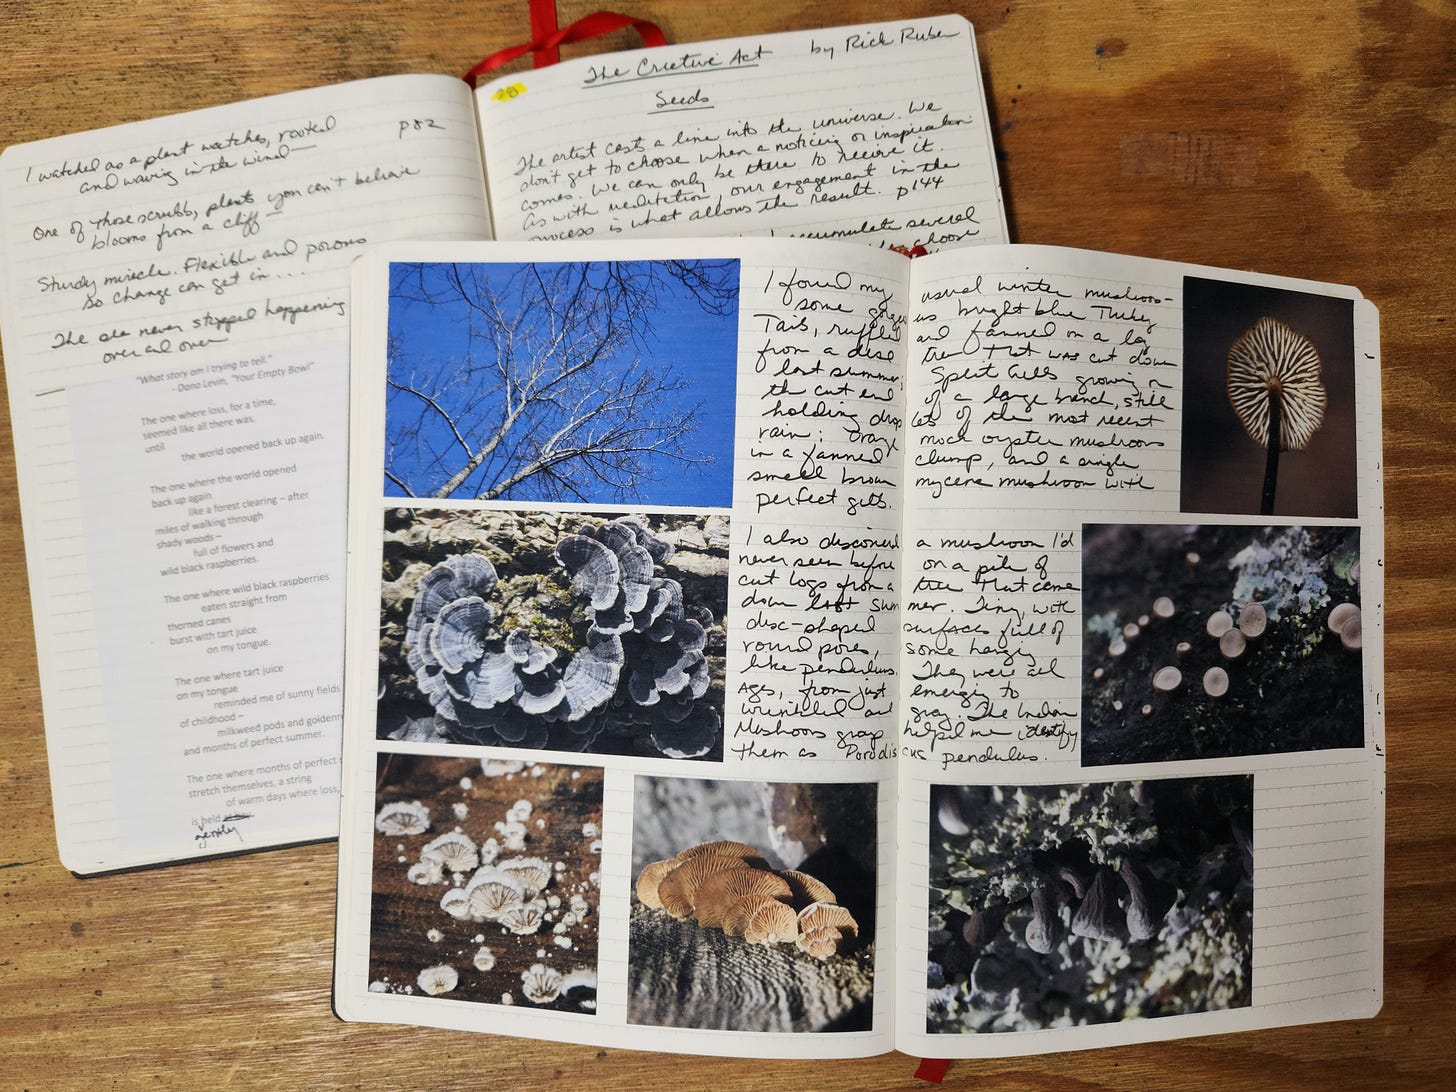 I watched as a plant watches, rooted p82
and waving in the wind—
One of those scrubb, plants you can't believe
blooms from a cliff—
Sturdy miracle. Flexible and porous
so change can get in . . .
The sea never stopped happening
over and over
"What story am I trying to tell."
- Dana Levin, "Your Empty Bowl"
The one where loss, for a time,
seemed like all there was,
until
the world opened back up again.
The one where the world opened
back up again
like a forest clearing – after
miles of walking through
shady woods –
full of flowers and
wild black raspberries.
The one where wild black raspberries
eaten straight from
thorned canes
burst with tart juice
on my tongue.
The one where tart juice
on my tongue
reminded me of sunny fields
of childhood –
milkweed pods and goldenr
and months of perfect summer.
The one where months of perfect s
stretch themselves, a string
of warm days where loss,
is held
gently
The Creative Act by Rick Ruben
Seeds
The artist casts a line into the universe. We
don't get to choose when a noticing or inspiration
comes. We can only be there to receive it.
As with meditation, our engagement in the
process is what allows the result. p144
accumulate several
choose
I found my usual winter mushroom-
some gorgeous bright blue Turkey
Tails, ruffled and fanned on a log
from a dead tree that was cut down
last summer, Split Gills growing on
the cut end of a large branch, still
holding drops of the most recent
rain; orange mock oyster mushrooms
in a fanned clump, and a single
small brown mycena mushroom with
perfect gills.
I also discovered a mushroom I'd
never seen before on a pile of
cut logs from a tree that came
down last summer. Tiny, with
disc-shaped surfaces full of
round pores, some hanging
like pendulus. They were all
ages, from just emerging to
wrinkled and gray. The Indiana
Mushroom group helped me identify
them as Porodisculus pendulus.